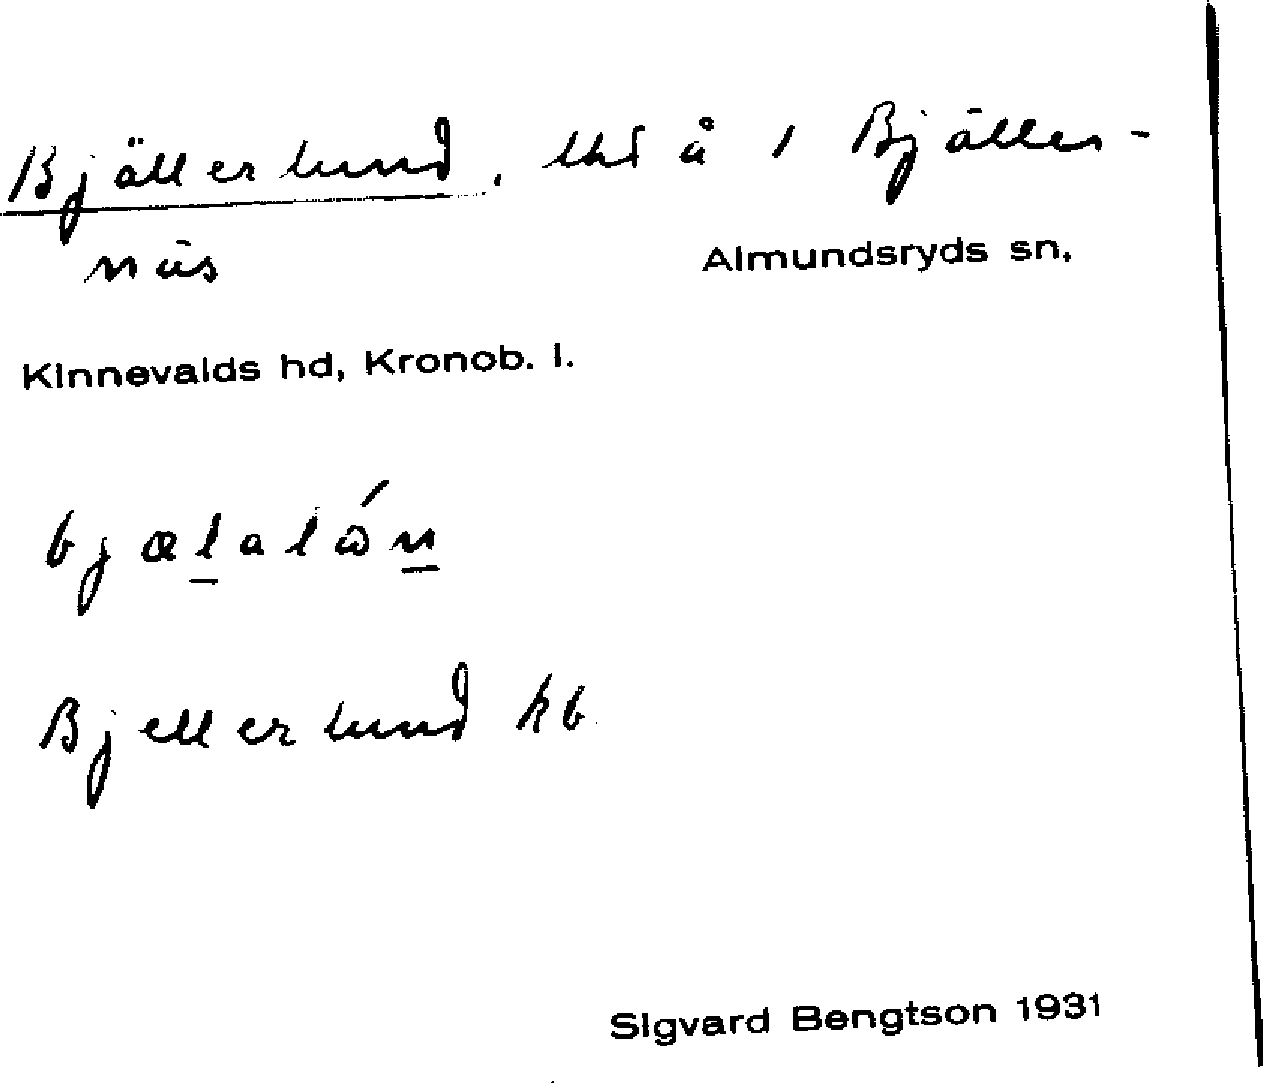 Bjällerlund, thd å 1 Bjäller-
näs
Almundsryds sn,
Kinnevalds hd, Kronob. l.
bjælalón
Bjellerlund kb
Sigvard Bengtson 1931